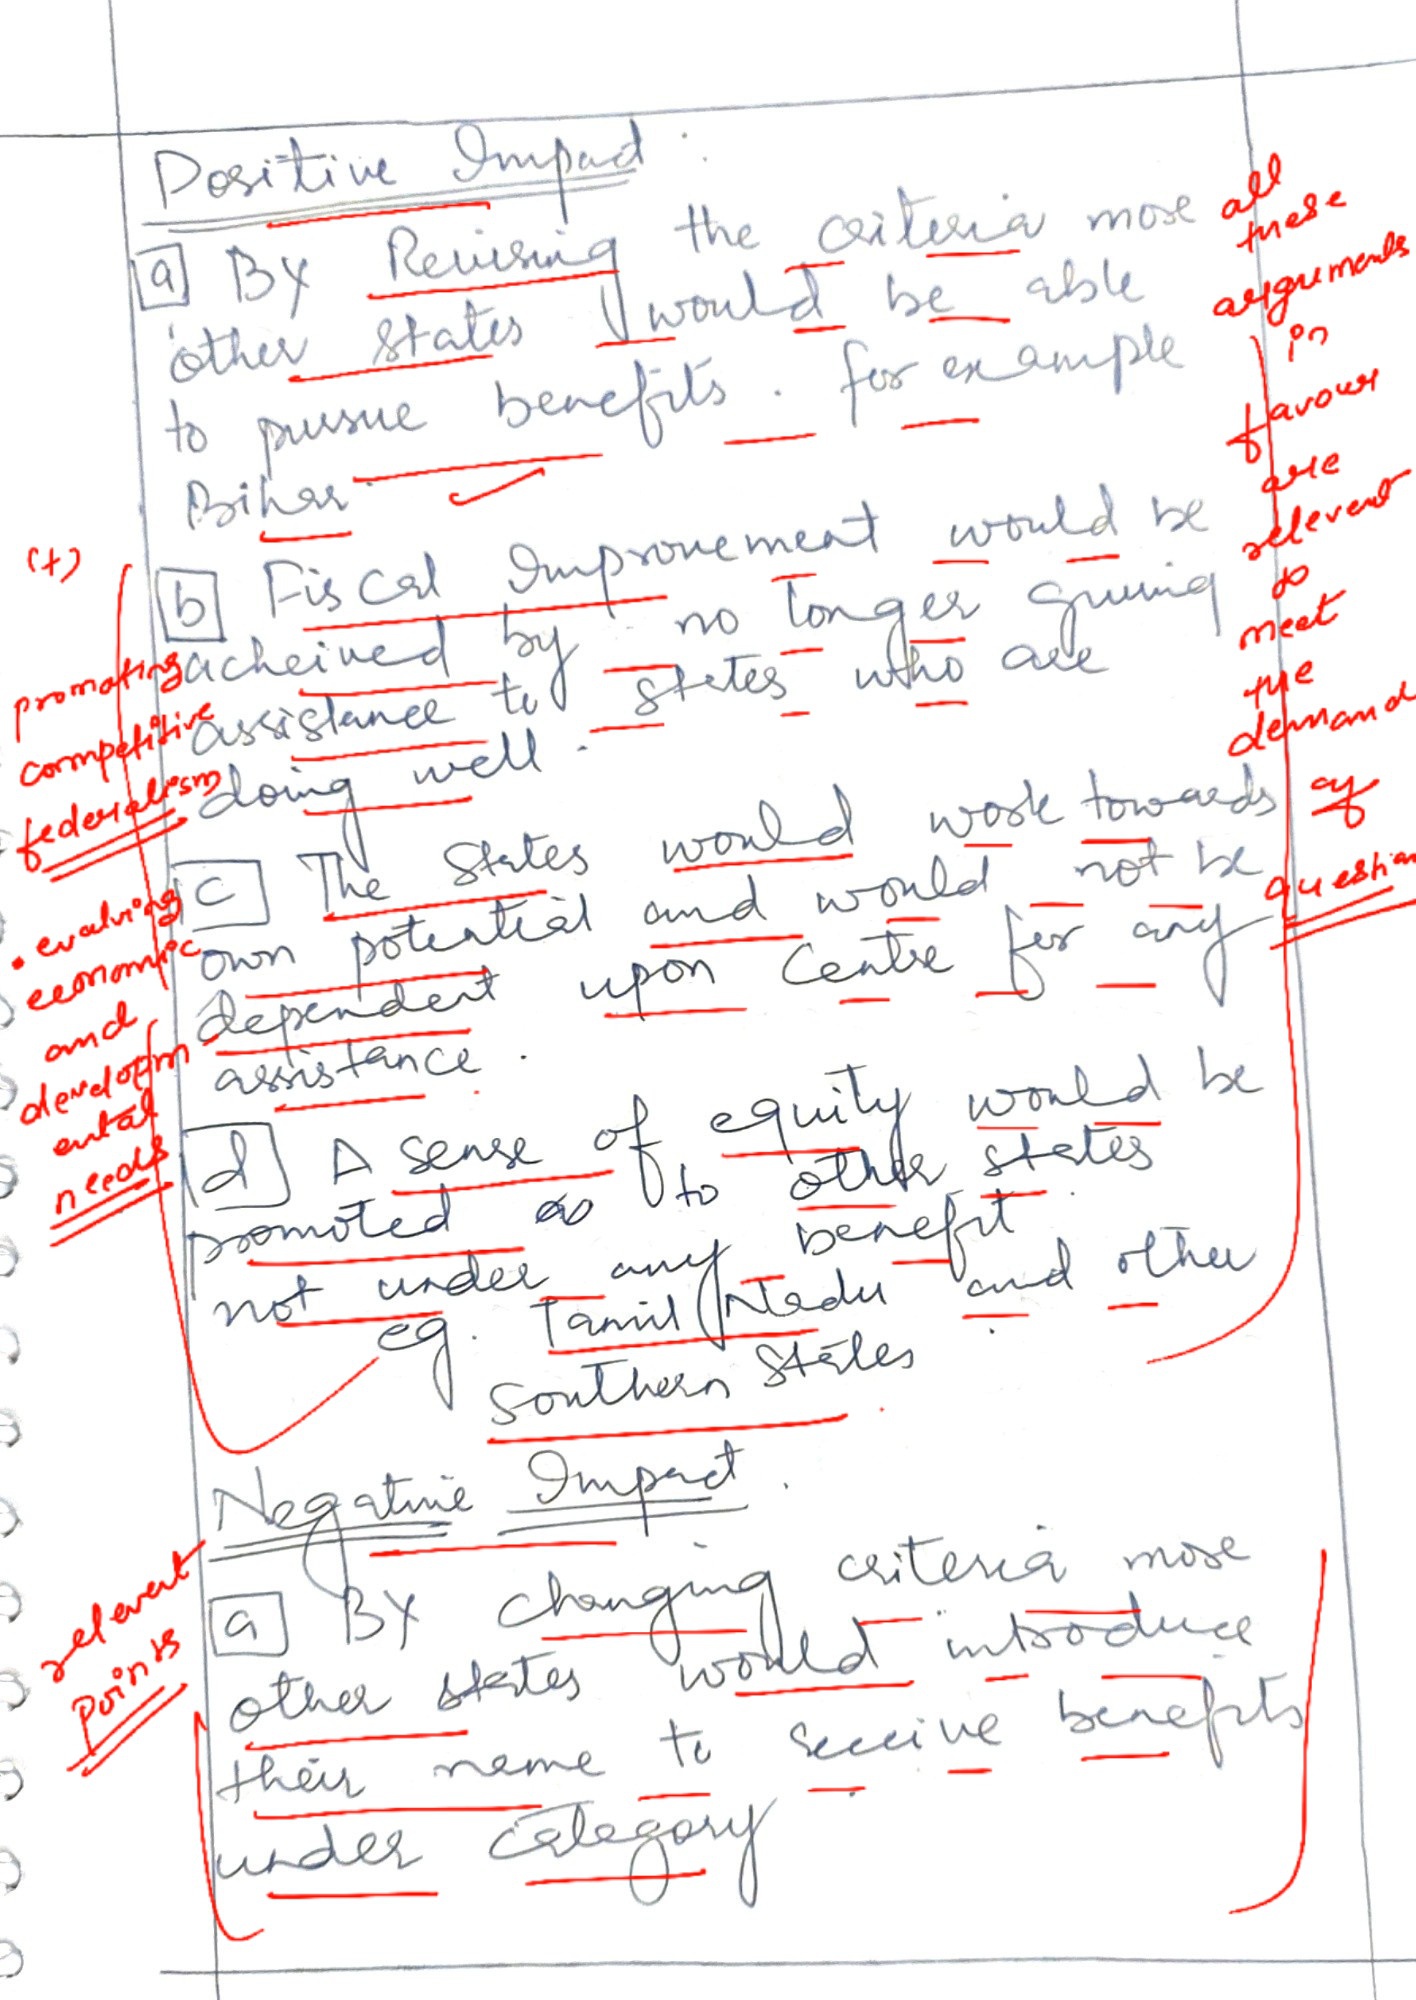 Positive Impact :
a By Revising the criteria more
other states would be able
to pursue benefits. for example
Bihar.
b Fiscal Improvement would be
acheived by no longer giving
assistance to states who are
doing well.
c The States would work towards
own potential and would not be
dependent upon Centre for any
assistance.
d A sense of equity would be
promoted as to other states
not under any benefit
eg. Tamil Nadu and other
Southern States.
Negative Impact.
a By changing criteria more
other states would introduce
their name to receive benefits
under category
all
these
arguments
in
favour
are
relevent
to
meet
the
demand
of
question
(+)
promoting
competitive
federalism
• evolving
economic
and
developm
ental
needs
relevent
points